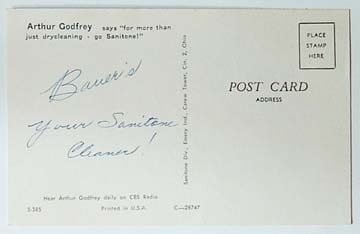 Arthur Godfrey says "for more than
just drycleaning - go Sanitone!"
PLACE
STAMP
HERE
Bauer's
Your Sanitone
Cleaner!
POST CARD
ADDRESS
Sanitone Div., Emery Ind., Carew Tower, Cin. 2, Ohio
Hear Arthur Godfrey daily on CBS Radio
S-385
Printed in U.S.A.
C—28747